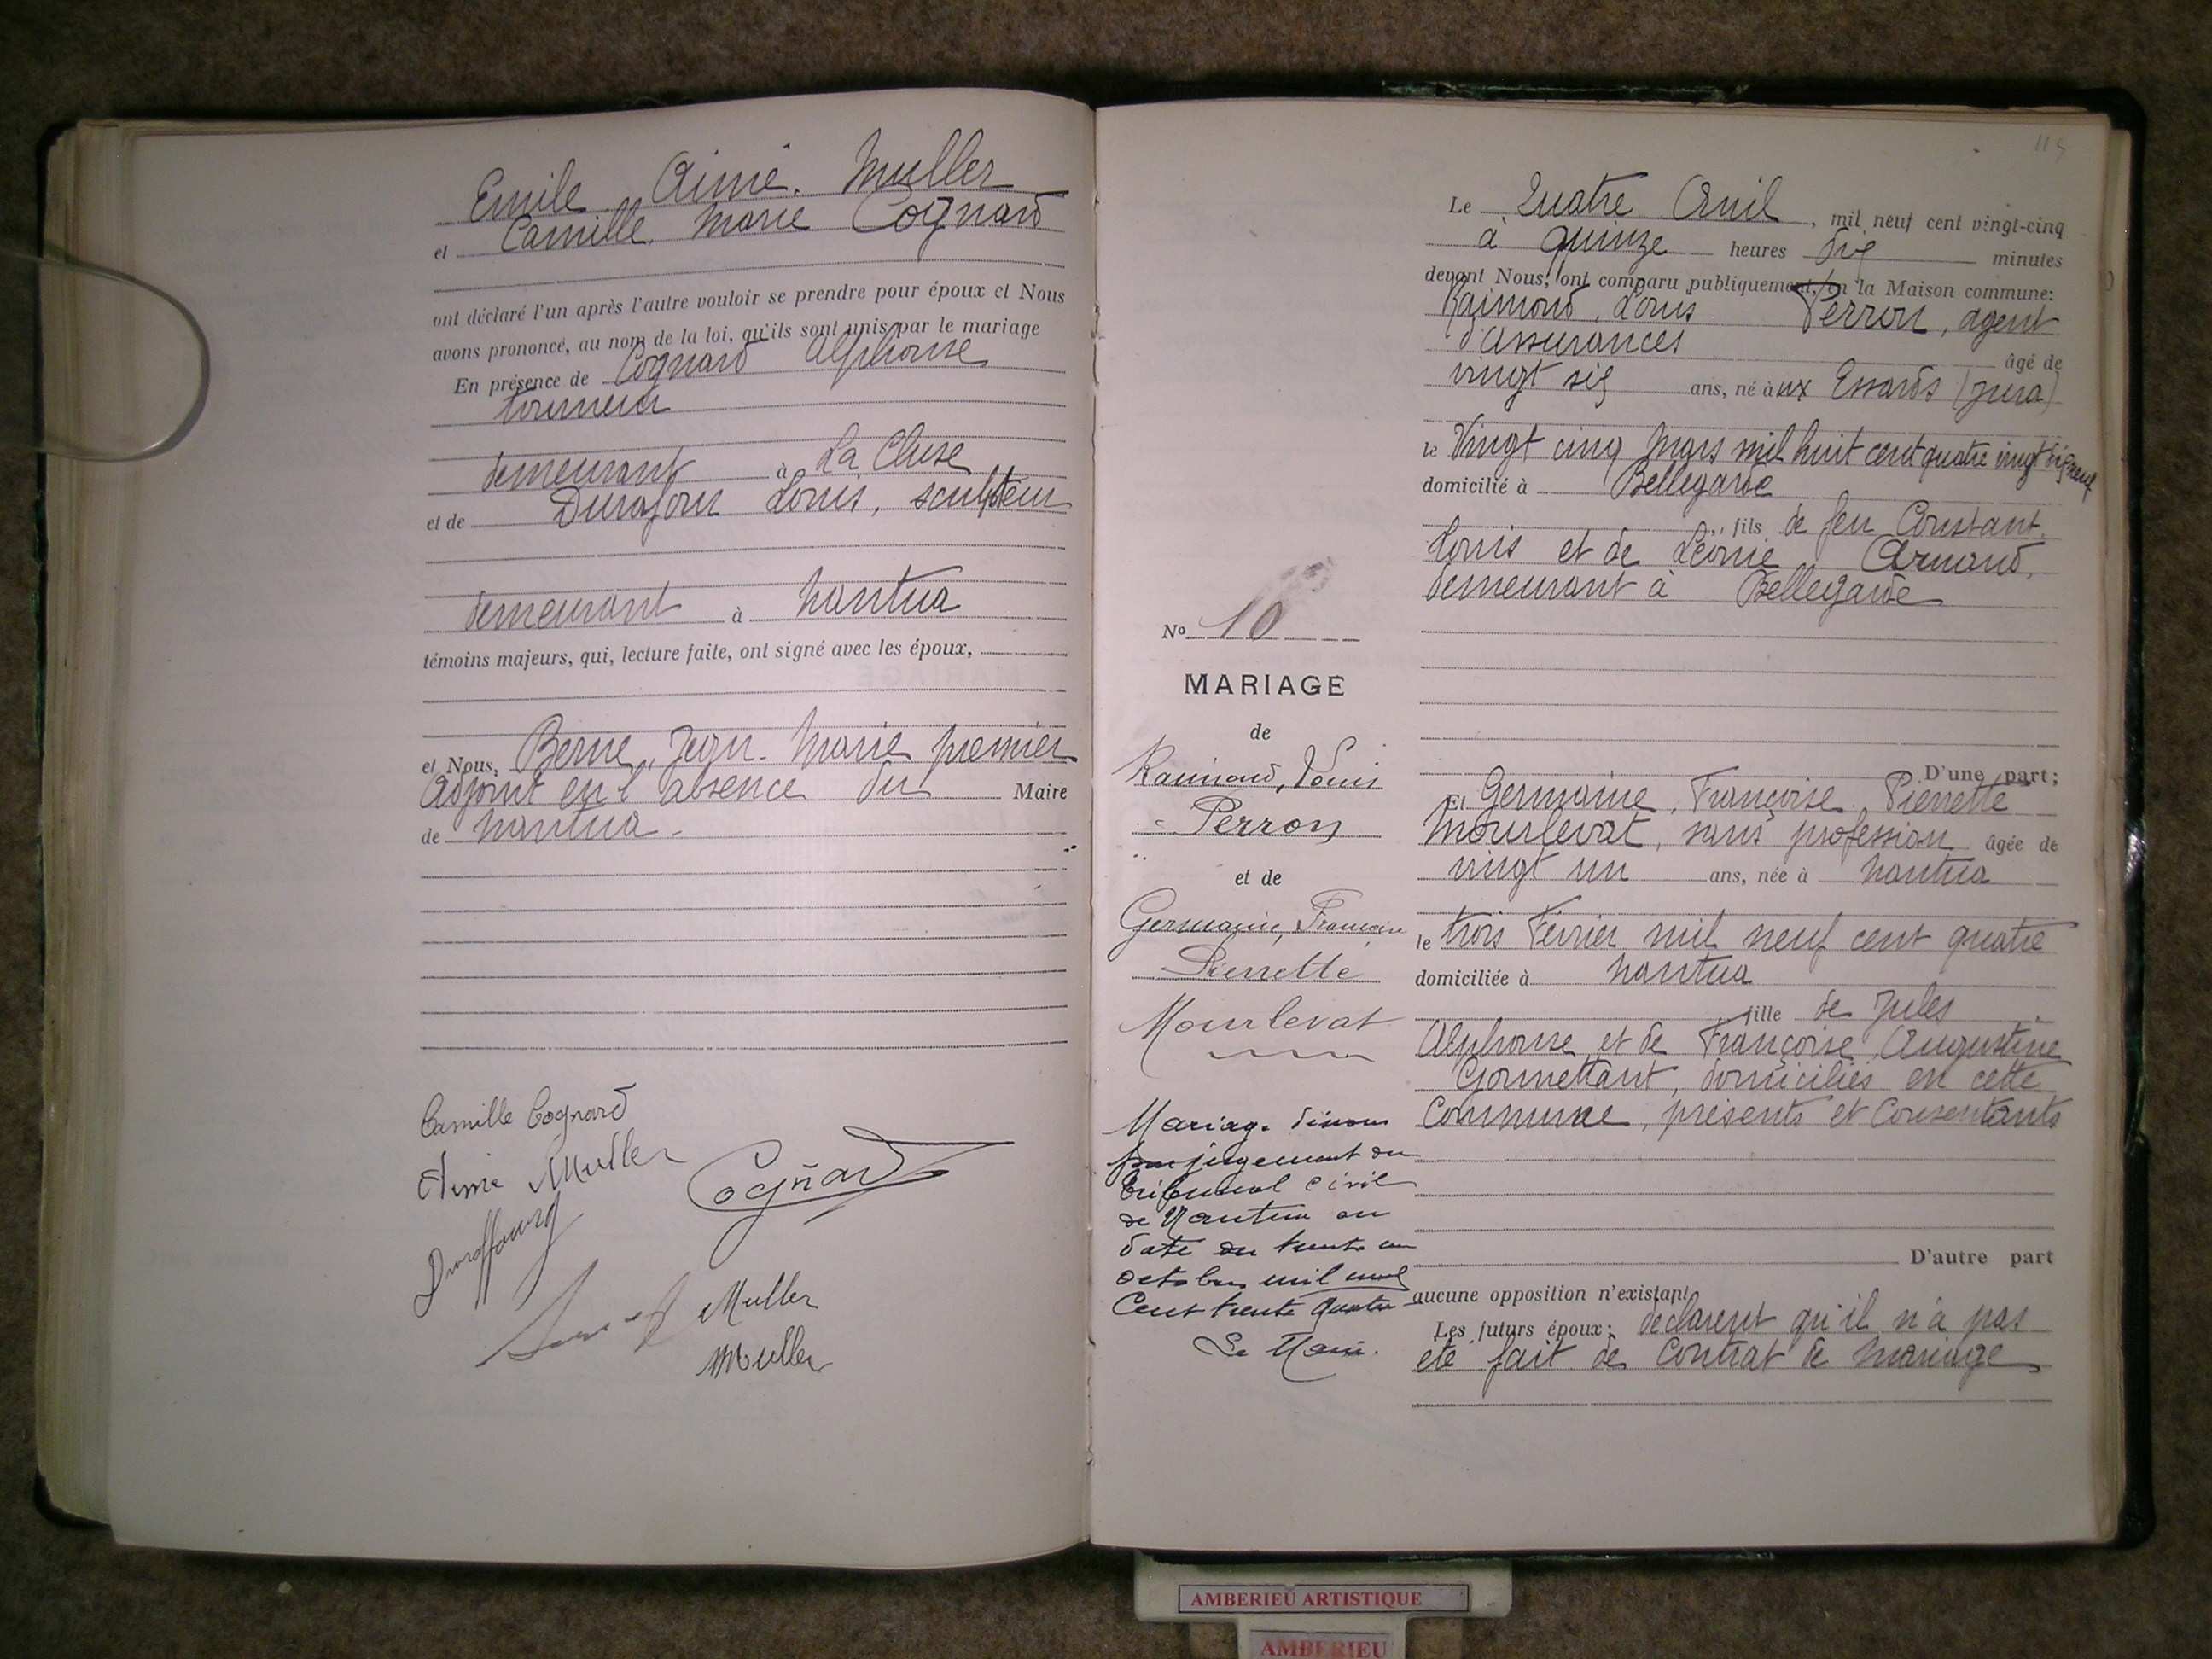 Emile Aimé. Muller
et Camille Marie Cognard
ont déclaré l'un après l'autre vouloir se prendre pour époux et Nous
avons prononcé, au nom de la loi, qu'ils sont unis par le mariage
En présence de Cognard Alphonse
tourneur
demeurant à La Cluse
et de Durafour Louis, sculpteur
demeurant à Nantua
témoins majeurs, qui, lecture faite, ont signé avec les époux,
et Nous, Berne, Jean-Marie premier
Adjoint en l'absence du Maire
de Nantua.
Camille Cognard
Aimé Muller
Cognard
Muller
Muller
115
No 10
MARIAGE
de
Raimond, Louis
Perron
et de
Germaine, Françoise
Pierrette
Mourlevat
Mariage dissous
par jugement du
tribunal civil
de Nantua en
date du trente un
octobre mil neuf
Cent trente quatre
Le Maire.
Le Quatre Avril, mil neuf cent vingt-cinq
à quinze heures dix minutes
devant Nous, ont comparu publiquement, en la Maison commune:
Raimond, Louis Perron, agent
d'Assurances âgé de
vingt six ans, né àux Essards (Jura)
le Vingt cinq Mars mil huit cent quatre vingt dix neuf
domicilié à Bellegarde
fils de feu Constant
Louis et de Léonie Arnaud,
demeurant à Bellegarde
D'une part;
Et Germaine, Françoise, Pierrette
Mourlevat, sans profession âgée de
vingt un ans, née à Nantua
le trois Février mil neuf cent quatre
domiciliée à Nantua
fille de Jules
Alphonse et de Françoise Augustine
Gormettant, domiciliés en cette
Commune, présents et Consentants
D'autre part
aucune opposition n'existant
Les futurs époux: déclarent qu'il n'a pas
été fait de Contrat de Mariage
AMBERIEU ARTISTIQUE
AMBERIEU